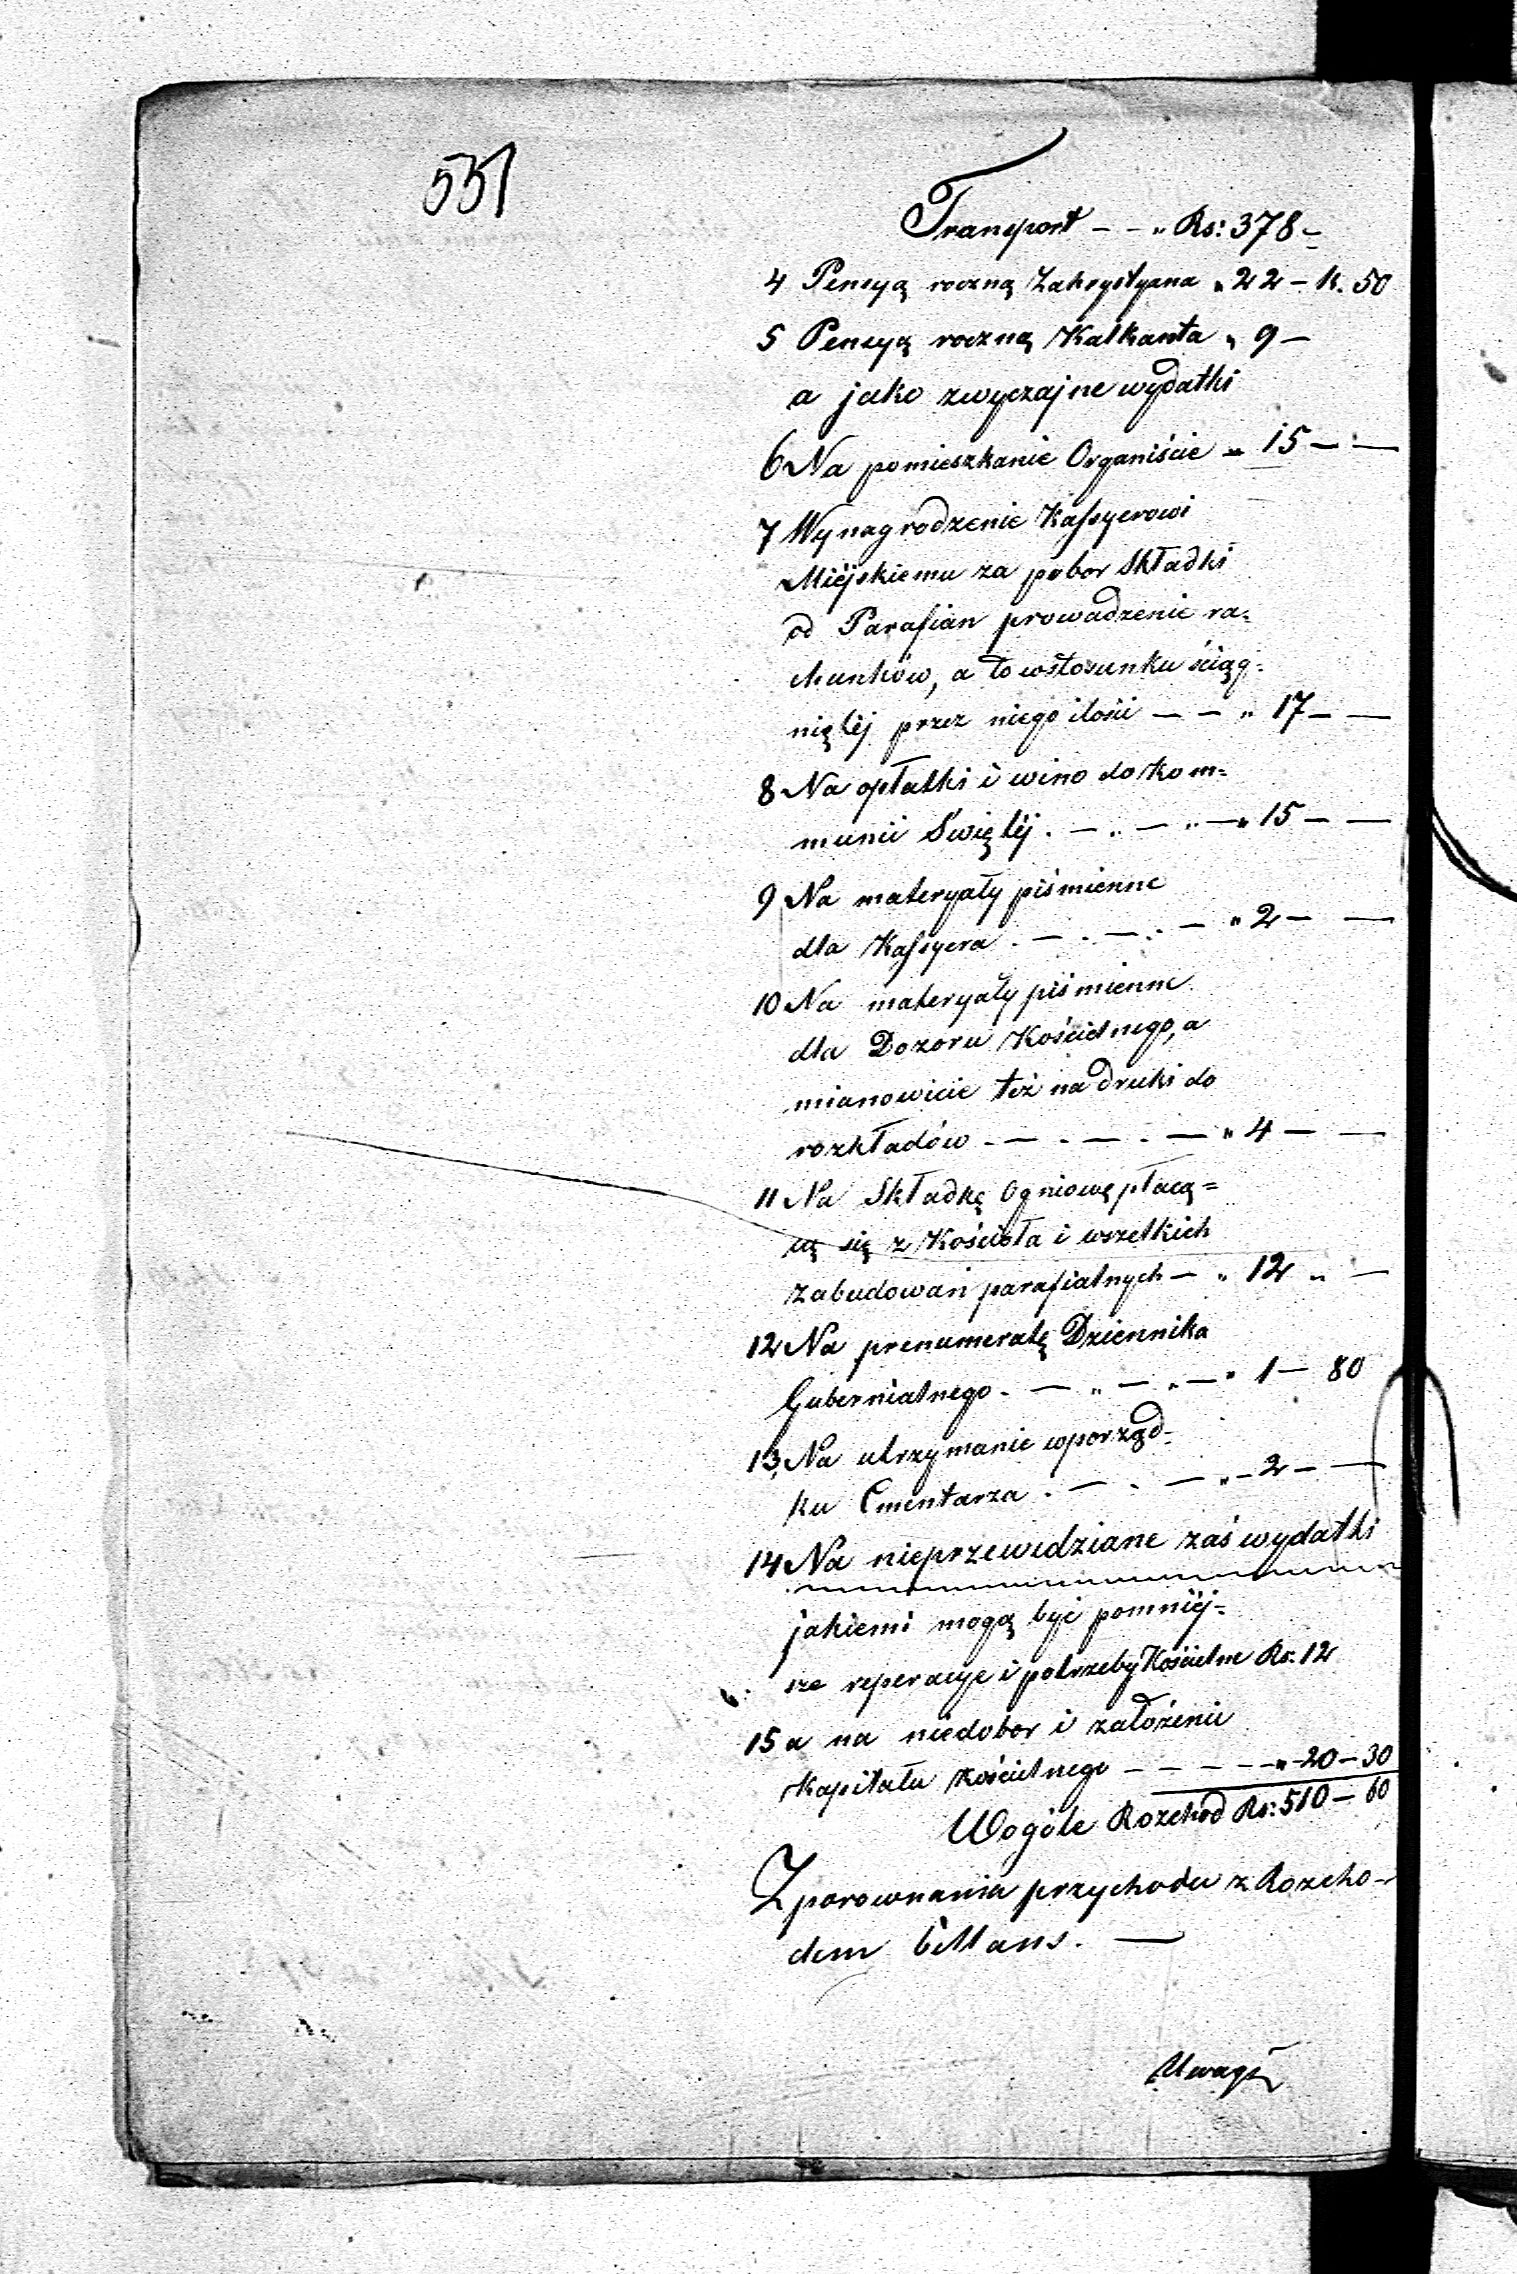 551
Transport – – „ Rs: 378 –
4 Pensyą roczną Zakrystyana „ 22 – k. 50
5 Pensyą roczną Kalkanta „ 9 –
a jako zwyczajne wydatki
6 Na pomieszkanie Organiście „ 15 – —
7 Wynagrodzenie Kassyerowi
Miéjskiemu za pobor Składki
od Parafian prowadzenie ra-
chunków, a to w stosunku ściąg-
niętéj przez niego ilości – – „ 17 – —
8 Na opłatki i wino do Kom-
munii Świętéj . – .. – .. – „ 15 – —
9 Na materyały piśmienne
dla Kassyera . – . – . . – „ 2 – —
10 Na materyały piśmienne
dla Dozoru Kościelnego, a
mianowicie też na druki do
rozkładów . – . – . – „ 4 – —
11 Na Składkę Ogniową płacą=
cą się z Kościoła i wszelkich
Zabudowań parafialnych – „ 12 „ —
12 Na prenumeratę Dziennika
Gubernialnego . – „ – „ – „ 1 – 80
13, Na utrzymanie w porząd-
ku Cmentarza . – . – „ – 2 – —
14 Na nieprzewidziane zaś wydatki
jakiemi mogą być pomniéj-
sze reperacye i potrzeby Kościelne Rs: 12
15 a na niedobor i założenie
Kapitału Kościelnego – – – – – „ – 20 – 30
Wogóle Rozchod Rs: 510 – 60
Z porownania przychodu z Rozcho-
dem billans. —
Uwagi